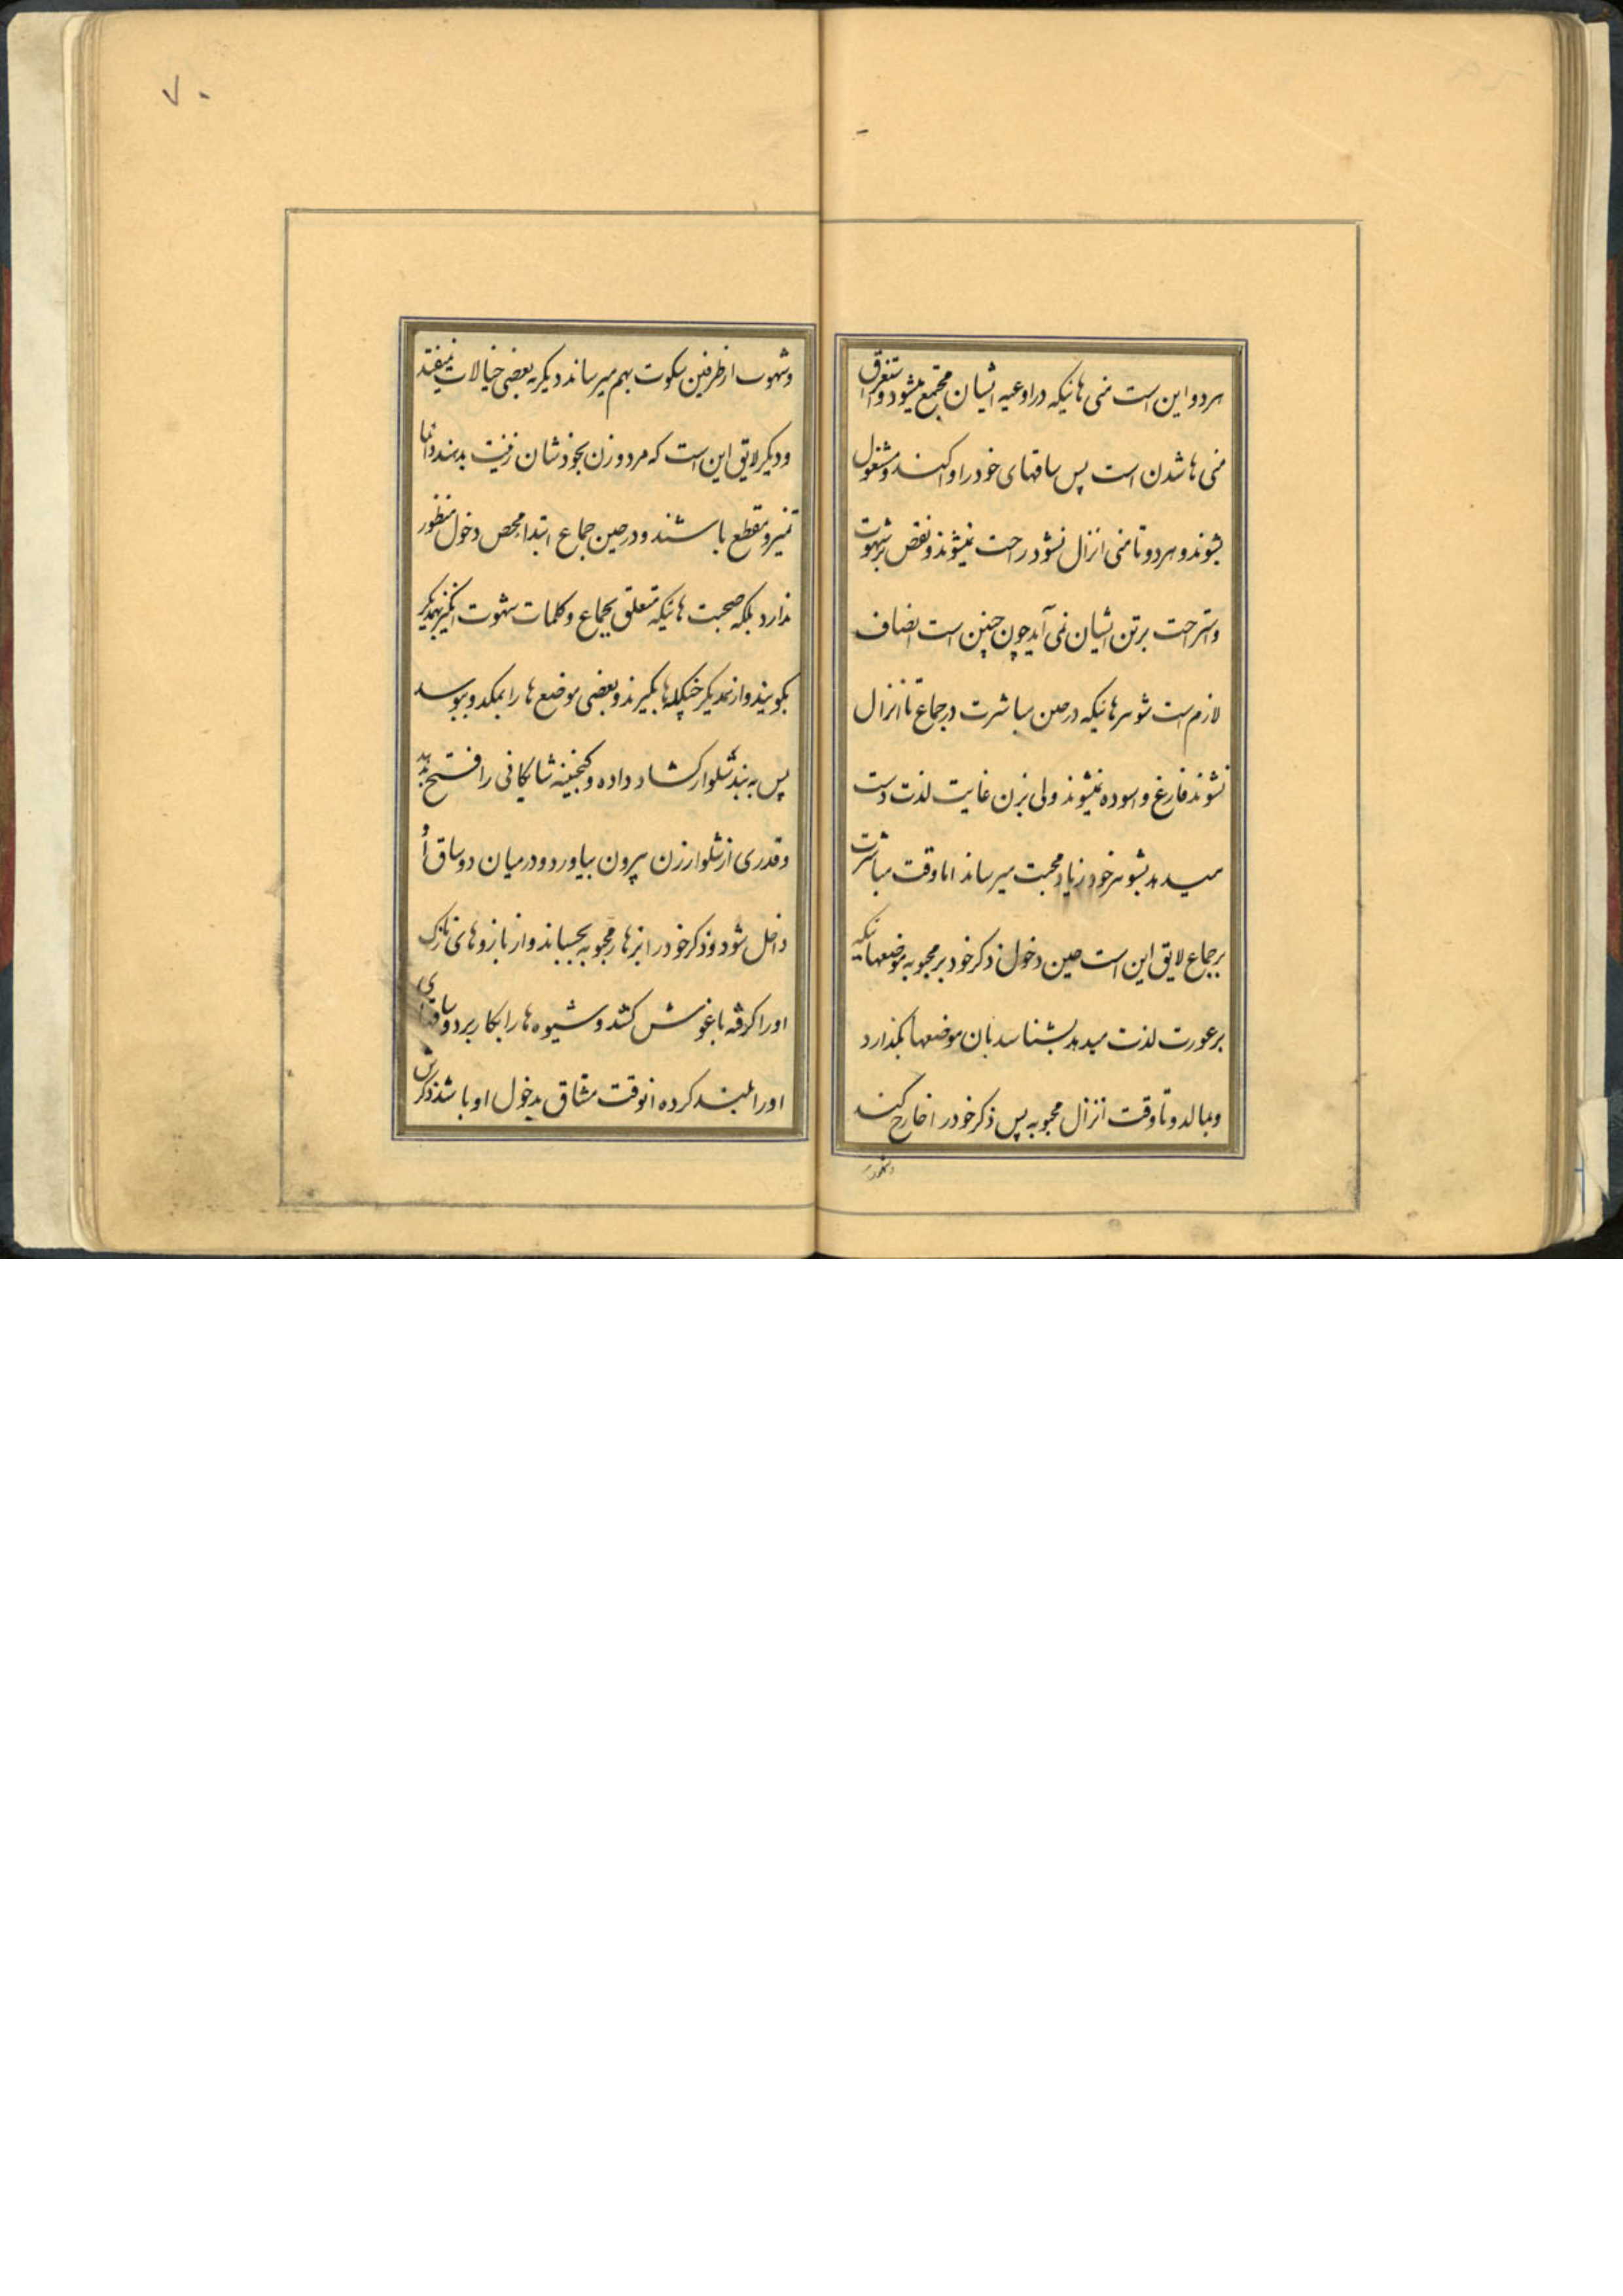 هردو این است منی هائیکه در اوعیه ایشان مجتمع میشود و استغراق
منی ها شدن است پس ساقهای خود را وا کنند و مشغول
بشوند و هردو تا منی انزال نشود راحت نمیشوند و نقص بر شهوت
و استراحت بر تن ایشان نمی آید چون چنین است انصاف
لازم است شوهرهائیکه در حین مباشرت در جماع تا انزال
نشوند فارغ و اسوده نمیشوند ولی بزن غایت لذت دست
میدهد بشوهر خود زیاد محبت میرساند اما وقت مباشرت
بر جماع لایق این است حین دخول ذکر خود بر محبوبه بموضعهائیکه
بر عورت لذت میدهد بشناسد بان موضعها بگذارد
و بمالد و تا وقت انزال محبوبه پس ذکر خود را خارج کند
و شهوت
۷۰
و شهوت از طرفین سکوت بهم میرساند دیگر به بعضی خیالات نمیفتد
و دیگر لایق این است که مرد و زن بخودشان زینت بدهند و دائما
تمیز و مقطع باشند و در حین جماع ابتدا محض دخول منظور
ندارد بلکه صحبت هائیکه متعلق بجماع و کلمات شهوت انگیز بهمدیگر
بگویند و از همدیگر خپکله ها بگیرند و بعضی موضع ها را بمکد و ببوسد
پس به بند شلوار کشاد داده و کنجینه شایکانی را فتح بدهد
و قدری از شلوار زن بیرون بیاورد و در میان دو ساق او
داخل شود و ذکر خود را بزهار محبوبه بچسباند و از بازوهای نازک
او را گرفته باغوش کشد و شیوه ها را بکار برد و ساقهای
او را بلند کرده انوقت مشتاق بدخول او باشد ذکرش